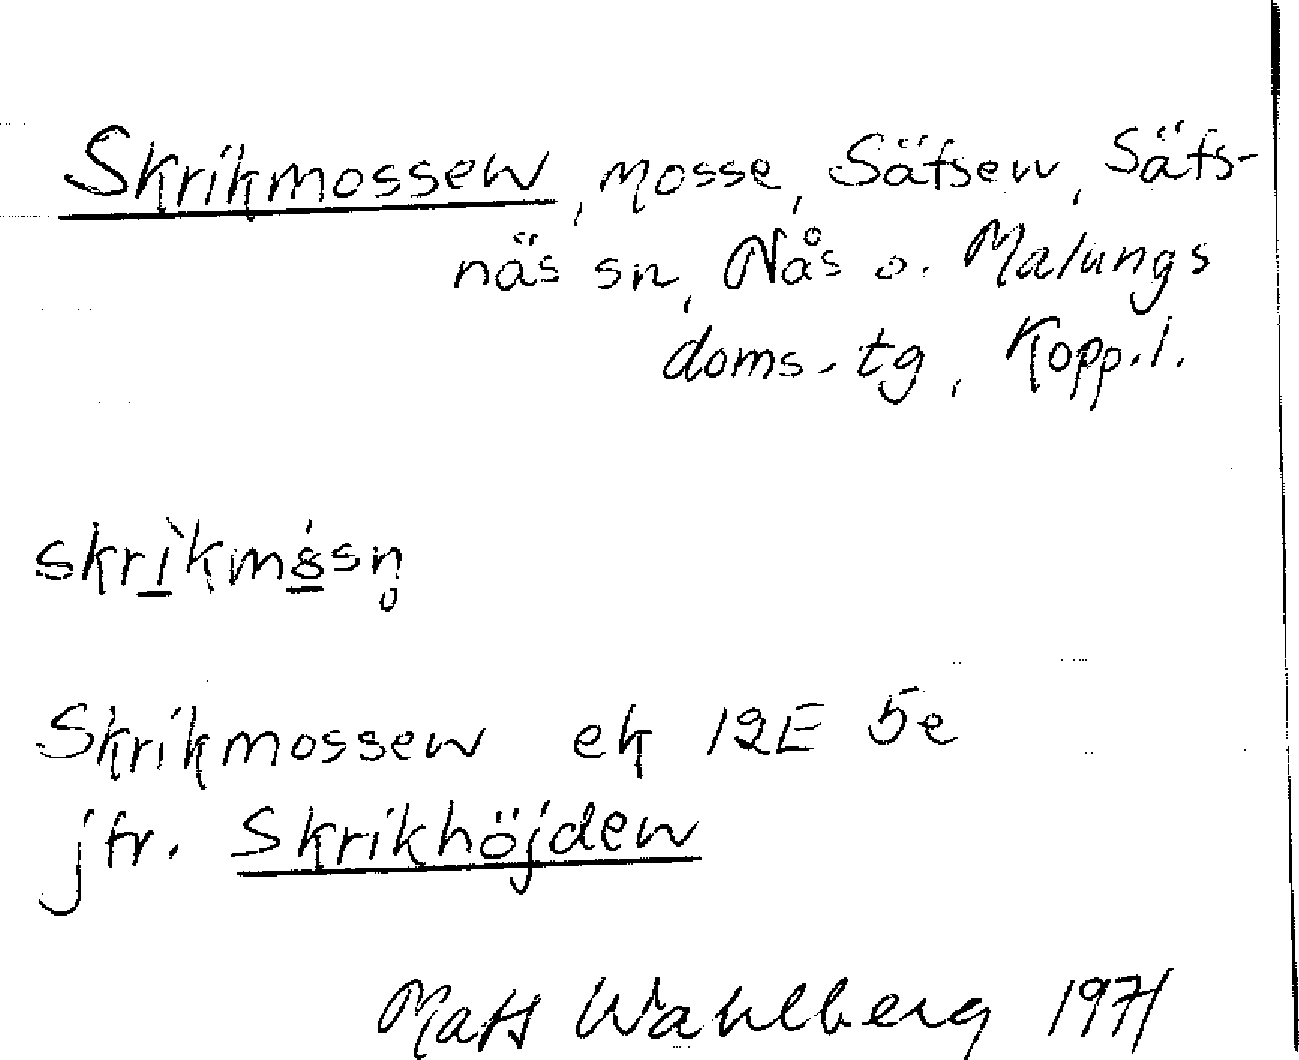 Skrikmossen, mosse, Säfsen, Säfs-
näs sn, Nås o. Malungs
doms. tg, Kopp.l.
Skrikmossen ek 12E 5e
jfr. Skrikhöjden
Mats Wahlberg 1971